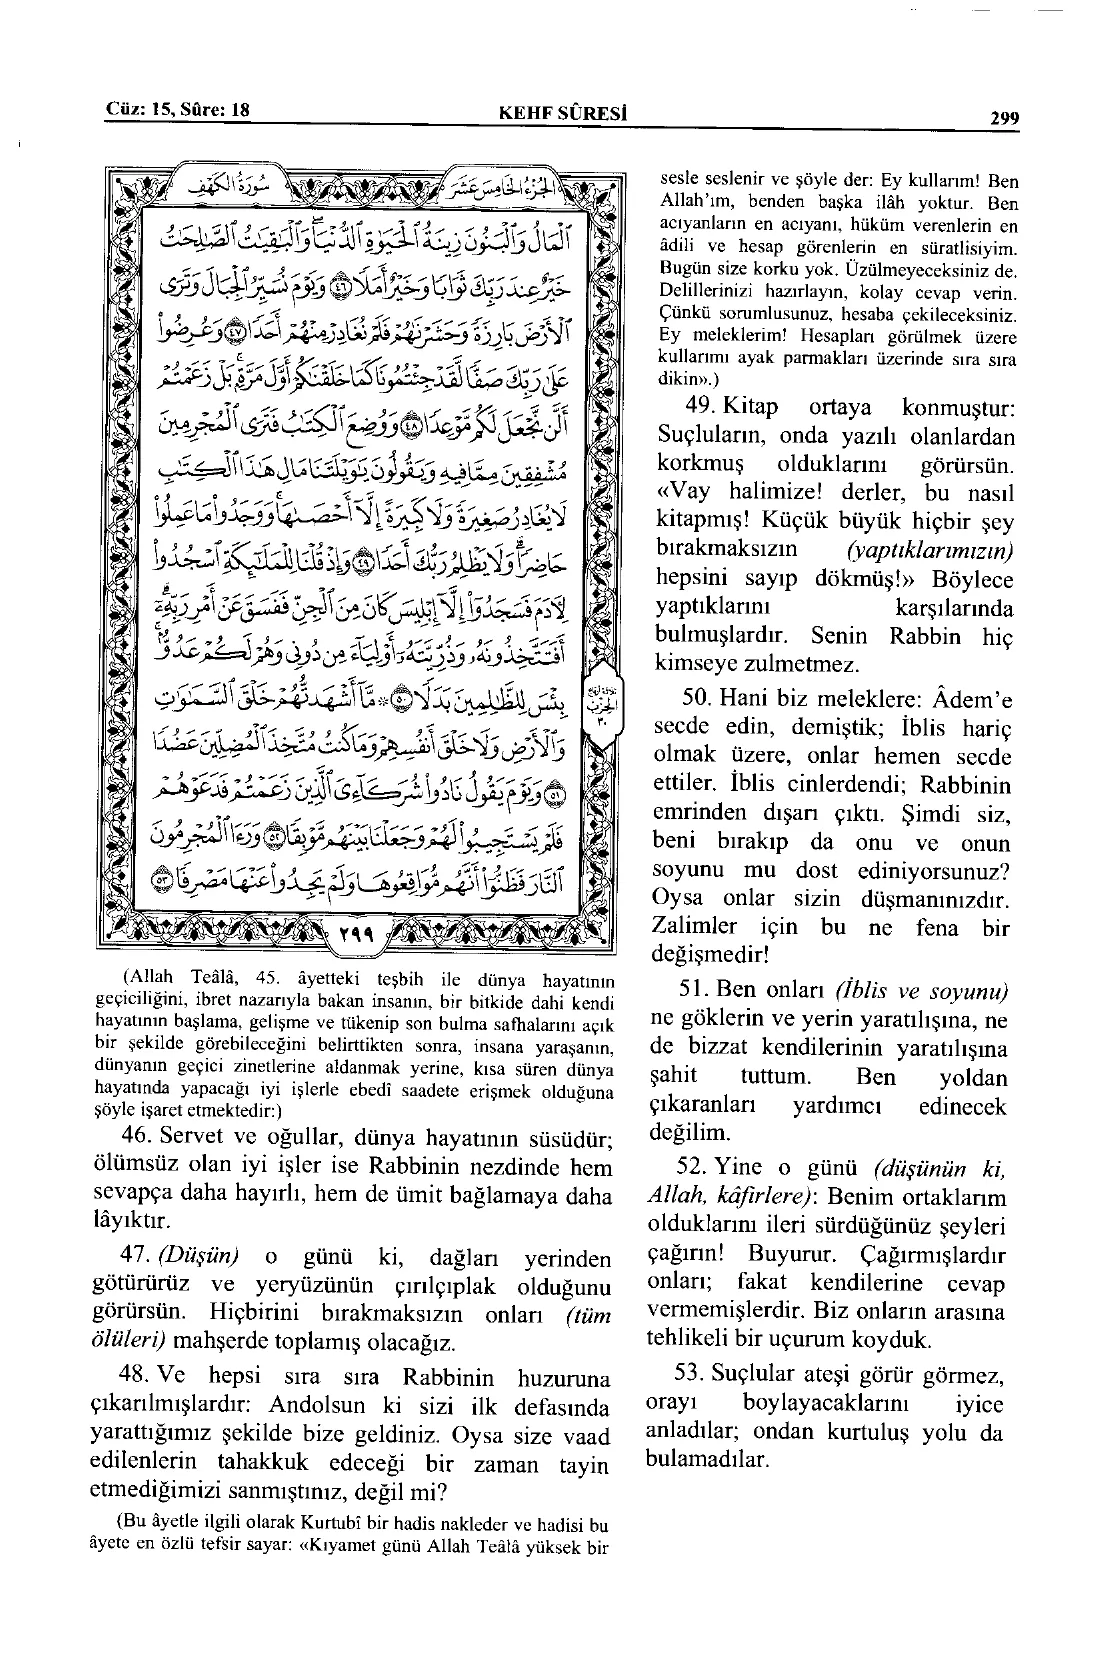 Cüz: 15, Sûre: 18
KEHF SÛRESİ
299
سُورَةُ الْكَهْفِ
الجُزْءُ الخَامِسَ عَشَرَ
ٱلْمَالُ وَٱلْبَنُونَ زِينَةُ ٱلْحَيَوٰةِ ٱلدُّنْيَا ۖ وَٱلْبَٰقِيَٰتُ ٱلصَّٰلِحَٰتُ
خَيْرٌ عِندَ رَبِّكَ ثَوَابًا وَخَيْرٌ أَمَلًا ٤٦ وَيَوْمَ نُسَيِّرُ ٱلْجِبَالَ وَتَرَى
ٱلْأَرْضَ بَارِزَةً وَحَشَرْنَٰهُمْ فَلَمْ نُغَادِرْ مِنْهُمْ أَحَدًا ٤٧ وَعُرِضُوا۟
عَلَىٰ رَبِّكَ صَفًّا لَّقَدْ جِئْتُمُونَا كَمَا خَلَقْنَٰكُمْ أَوَّلَ مَرَّةٍۭ ۚ بَلْ زَعَمْتُمْ
أَلَّن نَّجْعَلَ لَكُم مَّوْعِدًا ٤٨ وَوُضِعَ ٱلْكِتَٰبُ فَتَرَى ٱلْمُجْرِمِينَ
مُشْفِقِينَ مِمَّا فِيهِ وَيَقُولُونَ يَٰوَيْلَتَنَا مَالِ هَٰذَا ٱلْكِتَٰبِ
لَا يُغَادِرُ صَغِيرَةً وَلَا كَبِيرَةً إِلَّآ أَحْصَىٰهَا ۚ وَوَجَدُوا۟ مَا عَمِلُوا۟
حَاضِرًا ۗ وَلَا يَظْلِمُ رَبُّكَ أَحَدًا ٤٩ وَإِذْ قُلْنَا لِلْمَلَٰٓئِكَةِ ٱسْجُدُوا۟
لِءَادَمَ فَسَجَدُوٓا۟ إِلَّآ إِبْلِيسَ كَانَ مِنَ ٱلْجِنِّ فَفَسَقَ عَنْ أَمْرِ رَبِّهِۦٓ ۗ
أَفَتَتَّخِذُونَهُۥ وَذُرِّيَّتَهُۥٓ أَوْلِيَآءَ مِن دُونِى وَهُمْ لَكُمْ عَدُوٌّۢ ۚ
بِئْسَ لِلظَّٰلِمِينَ بَدَلًا ٥٠ ۞ مَّآ أَشْهَدتُّهُمْ خَلْقَ ٱلسَّمَٰوَٰتِ
وَٱلْأَرْضِ وَلَا خَلْقَ أَنفُسِهِمْ وَمَا كُنتُ مُتَّخِذَ ٱلْمُضِلِّينَ عَضُدًا
٥١ وَيَوْمَ يَقُولُ نَادُوا۟ شُرَكَآءِىَ ٱلَّذِينَ زَعَمْتُمْ فَدَعَوْهُمْ
فَلَمْ يَسْتَجِيبُوا۟ لَهُمْ وَجَعَلْنَا بَيْنَهُم مَّوْبِقًا ٥٢ وَرَءَا ٱلْمُجْرِمُونَ
ٱلنَّارَ فَظَنُّوٓا۟ أَنَّهُم مُّوَاقِعُوهَا وَلَمْ يَجِدُوا۟ عَنْهَا مَصْرِفًا ٥٣
الحِزْب
٣٠
٢٩٩
(Allah Teâlâ, 45. âyetteki teşbih ile dünya hayatının
geçiciliğini, ibret nazarıyla bakan insanın, bir bitkide dahi kendi
hayatının başlama, gelişme ve tükenip son bulma safhalarını açık
bir şekilde görebileceğini belirttikten sonra, insana yaraşanın,
dünyanın geçici zinetlerine aldanmak yerine, kısa süren dünya
hayatında yapacağı iyi işlerle ebedî saadete erişmek olduğuna
şöyle işaret etmektedir:)
46. Servet ve oğullar, dünya hayatının süsüdür;
ölümsüz olan iyi işler ise Rabbinin nezdinde hem
sevapça daha hayırlı, hem de ümit bağlamaya daha
lâyıktır.
47. (Düşün) o günü ki, dağları yerinden
götürürüz ve yeryüzünün çırılçıplak olduğunu
görürsün. Hiçbirini bırakmaksızın onları (tüm
ölüleri) mahşerde toplamış olacağız.
48. Ve hepsi sıra sıra Rabbinin huzuruna
çıkarılmışlardır: Andolsun ki sizi ilk defasında
yarattığımız şekilde bize geldiniz. Oysa size vaad
edilenlerin tahakkuk edeceği bir zaman tayin
etmediğimizi sanmıştınız, değil mi?
(Bu âyetle ilgili olarak Kurtubî bir hadis nakleder ve hadisi bu
âyete en özlü tefsir sayar: «Kıyamet günü Allah Teâlâ yüksek bir
sesle seslenir ve şöyle der: Ey kullarım! Ben
Allah'ım, benden başka ilâh yoktur. Ben
acıyanların en acıyanı, hüküm verenlerin en
âdili ve hesap görenlerin en süratlisiyim.
Bugün size korku yok. Üzülmeyeceksiniz de.
Delillerinizi hazırlayın, kolay cevap verin.
Çünkü sorumlusunuz, hesaba çekileceksiniz.
Ey meleklerim! Hesapları görülmek üzere
kullarımı ayak parmakları üzerinde sıra sıra
dikin».)
49. Kitap ortaya konmuştur:
Suçluların, onda yazılı olanlardan
korkmuş olduklarını görürsün.
«Vay halimize! derler, bu nasıl
kitapmış! Küçük büyük hiçbir şey
bırakmaksızın (yaptıklarımızın)
hepsini sayıp dökmüş!» Böylece
yaptıklarını karşılarında
bulmuşlardır. Senin Rabbin hiç
kimseye zulmetmez.
50. Hani biz meleklere: Âdem'e
secde edin, demiştik; İblis hariç
olmak üzere, onlar hemen secde
ettiler. İblis cinlerdendi; Rabbinin
emrinden dışarı çıktı. Şimdi siz,
beni bırakıp da onu ve onun
soyunu mu dost ediniyorsunuz?
Oysa onlar sizin düşmanınızdır.
Zalimler için bu ne fena bir
değişmedir!
51. Ben onları (İblis ve soyunu)
ne göklerin ve yerin yaratılışına, ne
de bizzat kendilerinin yaratılışına
şahit tuttum. Ben yoldan
çıkaranları yardımcı edinecek
değilim.
52. Yine o günü (düşünün ki,
Allah, kâfirlere): Benim ortaklarım
olduklarını ileri sürdüğünüz şeyleri
çağırın! Buyurur. Çağırmışlardır
onları; fakat kendilerine cevap
vermemişlerdir. Biz onların arasına
tehlikeli bir uçurum koyduk.
53. Suçlular ateşi görür görmez,
orayı boylayacaklarını iyice
anladılar; ondan kurtuluş yolu da
bulamadılar.